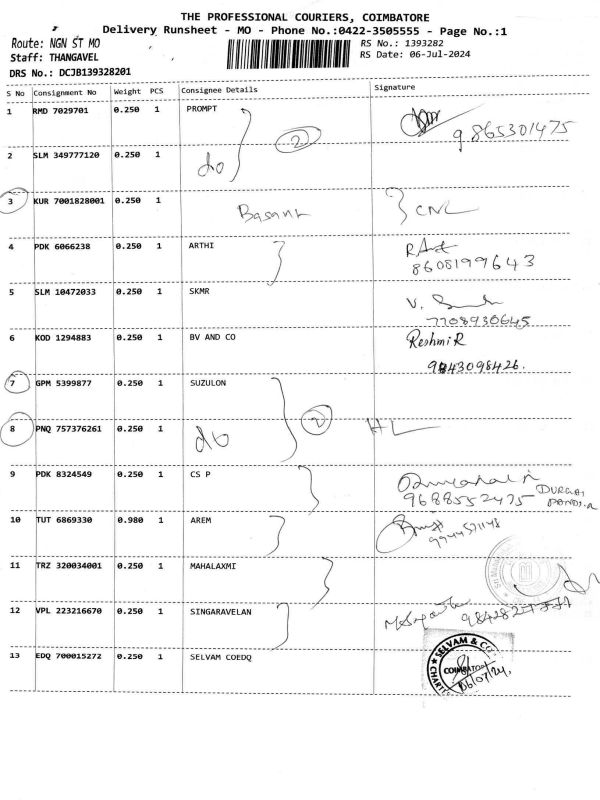 THE PROFESSIONAL COURIERS, COIMBATORE
Delivery Runsheet - MO - Phone No.:0422-3505555 - Page No.:1
Route: NGN ST MO
RS No.: 1393282
Staff: THANGAVEL
RS Date: 06-Jul-2024
DRS No.: DCJB139328201
S No Consignment No Weight PCS Consignee Details Signature
1 RMD 7029701 0.250 1 PROMPT
2
9865301475
2 SLM 349777120 0.250 1 do
3 KUR 7001828001 0.250 1 CNL
4 PDK 6066238 0.250 1 ARTHI
8608199643
5 SLM 10472033 0.250 1 SKMR
7708930645
6 KOD 1294883 0.250 1 BV AND CO Reshmi R
9843098426.
7 GPM 5399877 0.250 1 SUZULON
2
8 PNQ 757376261 0.250 1 do HL
9 PDK 8324549 0.250 1 CS P
9688552475 DURGAI
10 TUT 6869330 0.980 1 AREM
11 TRZ 320034001 0.250 1 MAHALAXMI
12 VPL 223216670 0.250 1 SINGARAVELAN
13 EDQ 700015272 0.250 1 SELVAM COEDQ
SELVAM & CO
COIMBATORE
06/07/24.